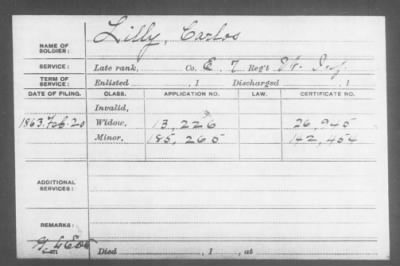 NAME OF SOLDIER: Lilly, Carlos
SERVICE: Late rank, Co. E. 7 Reg't
TERM OF SERVICE: Enlisted , 1 Discharged , 1
DATE OF FILING. CLASS. APPLICATION NO. LAW. CERTIFICATE NO.
Invalid,
1863 Feb. 20 Widow, 13,226 26,945
Minor, 185,265 142,454
ADDITIONAL SERVICES:
REMARKS:
Died , 1 , at